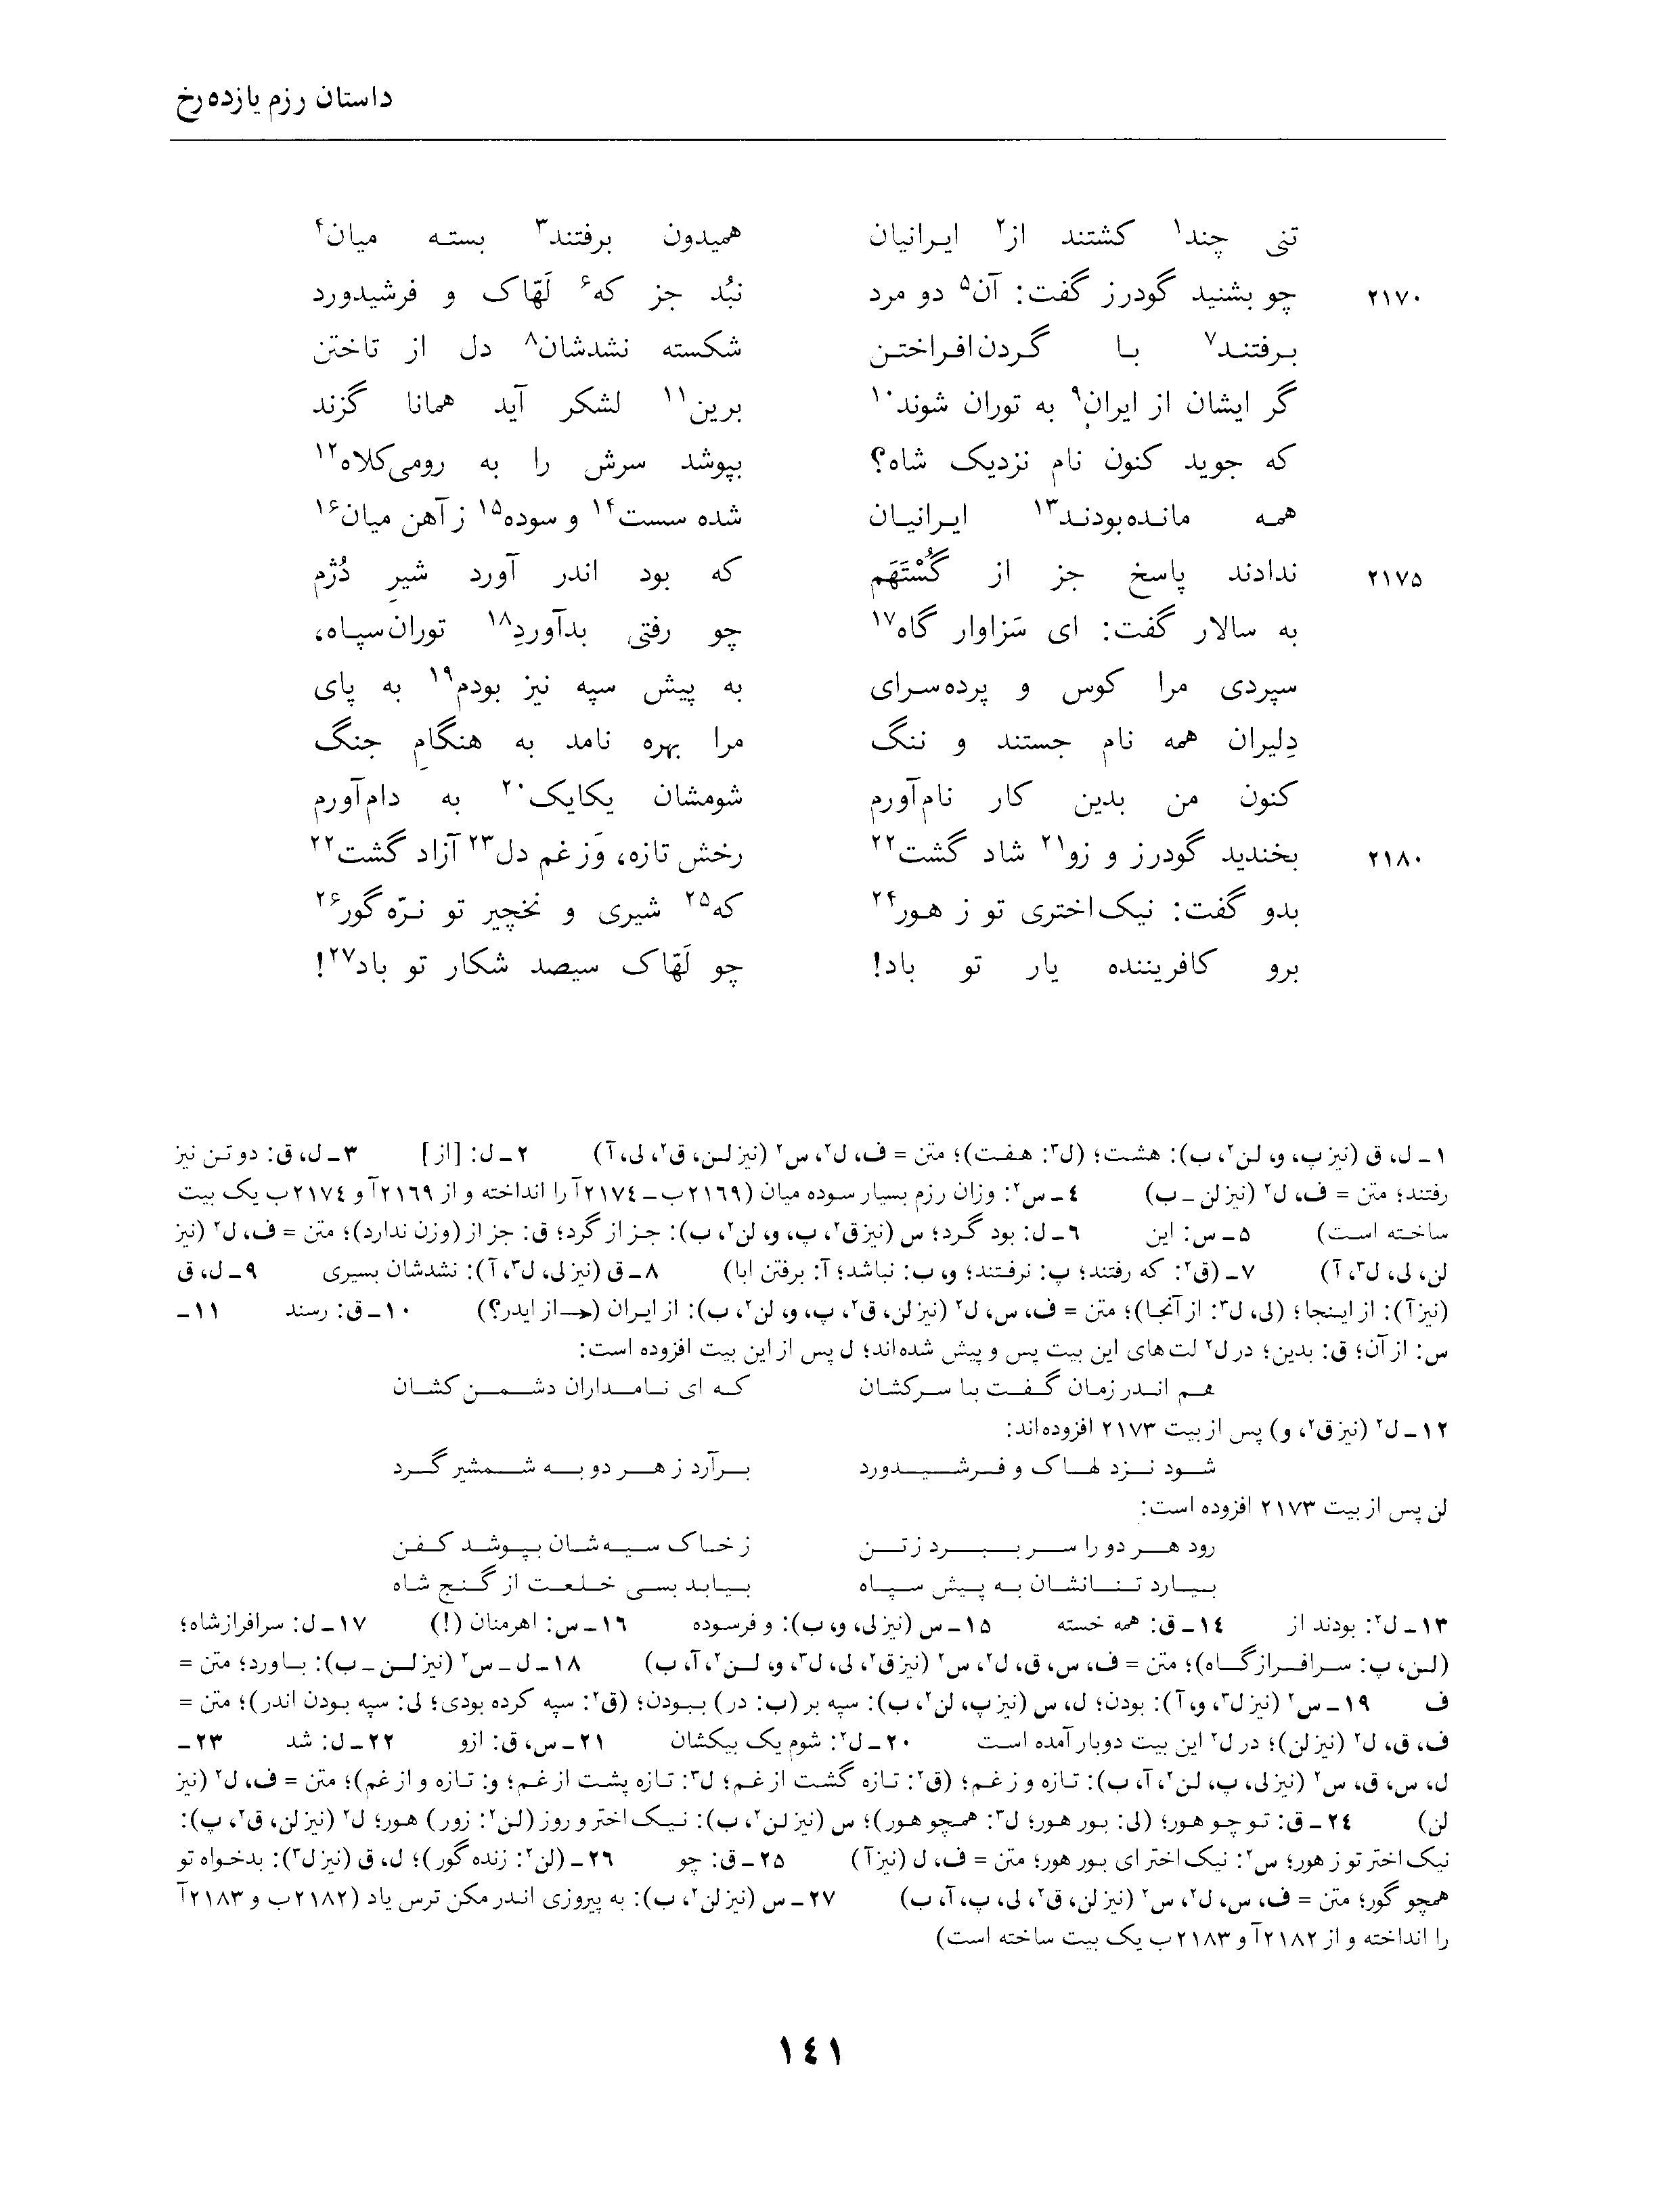 داستان رزم یازده‌رخ
تنی چند۱ کشتند از۲ ایرانیان همیدون برفتند۳ بسته میان۴
۲۱۷۰ چو بشنید گودرز گفت: آن۵ دو مرد نبُد جز که۶ لَهّاک و فرشیدورد
برفتند۷ با گردن‌افراختن شکسته نشدشان۸ دل از تاختن
گر ایشان از ایران۹ به توران شوند۱۰ برین۱۱ لشکر آید همانا گزند
که جوید کنون نام نزدیک شاه؟ بپوشد سرش را به رومی‌کلاه۱۲
همه مانده‌بودند۱۳ ایرانیان شده سست۱۴ و سوده۱۵ ز آهن میان۱۶
۲۱۷۵ ندادند پاسخ جز از گُسْتَهَم که بود اندر آورد شیرِ دُژم
به سالار گفت: ای سَزاوار گاه۱۷ چو رفتی بدآوردِ۱۸ توران‌سپاه،
سپردی مرا کوس و پرده‌سرای به پیش سپه نیز بودم۱۹ به پای
دِلیران همه نام جستند و ننگ مرا بهره نامد به هنگامِ جنگ
کنون من بدین کار نام‌آورم شومشان یکایک۲۰ به دام‌آورم
۲۱۸۰ بخندید گودرز و زو۲۱ شاد گشت۲۲ رخش تازه، وَز غم دل۲۳ آزاد گشت۲۲
بدو گفت: نیک‌اختری تو ز هور۲۴ که۲۵ شیری و نخچیر تو نرّه‌گور۲۶
برو کافریننده یار تو باد! چو لَهّاک سیصد شکار تو باد۲۷!
۱ـ ل، ق (نیز پ، و، لن۲، ب): هشت؛ (ل۳: هفت)؛ متن = ف، ل۲، س۲ (نیز لن، ق۲، لی، آ) ۲ـ ل: [از] ۳ـ ل، ق: دو تن نیز
رفتند؛ متن = ف، ل۲ (نیز لن ـ ب) ۴ـ س۲: وزان رزم بسیار سوده میان (۲۱۶۹ب ـ ۲۱۷۴آ را انداخته و از ۲۱۶۹آ و ۲۱۷۴ب یک بیت
ساخته است) ۵ـ س: این ۶ـ ل: بود گرد؛ س (نیز ق۲، پ، و، لن۲، ب): جز از گرد؛ ق: جز از (وزن ندارد)؛ متن = ف، ل۲ (نیز
لن، لی، ل۳، آ) ۷ـ (ق۲: که رفتند؛ پ: نرفتند؛ و، ب: نباشد؛ آ: برفتن ابا) ۸ـ ق (نیز لی، ل۳، آ): نشدشان بسیری ۹ـ ل، ق
(نیز آ): از اینجا؛ (لی، ل۳: از آنجا)؛ متن = ف، س، ل۲ (نیز لن، ق۲، پ، و، لن۲، ب): از ایران (← از ایدر؟) ۱۰ـ ق: رسند ۱۱ـ
س: از آن؛ ق: بدین؛ در ل۲ لت‌های این بیت پس و پیش شده‌اند؛ ل پس از این بیت افزوده است:
هم اندر زمان گفت با سرکشان که ای نامداران دشمن کشان
۱۲ـ ل۲ (نیز ق۲، و) پس از بیت ۲۱۷۳ افزوده‌اند:
شود نزد لهاک و فرشیدورد برآرد ز هر دو به شمشیر گرد
لن پس از بیت ۲۱۷۳ افزوده است:
رود هر دو را سر ببرد ز تن ز خاک سیه‌شان بپوشد کفن
بیارد تنانشان به پیش سپاه بیابد بسی خلعت از گنج شاه
۱۳ـ ل۲: بودند از ۱۴ـ ق: همه خسته ۱۵ـ س (نیز لی، و، ب): و فرسوده ۱۶ـ س: اهرمنان (!) ۱۷ـ ل: سرافرازشاه؛
(لن، پ: سرافرازگاه)؛ متن = ف، س، ق، ل۲، س۲ (نیز ق۲، لی، ل۳، و، لن۲، آ، ب) ۱۸ـ ل ـ س۲ (نیز لن ـ ب): بآورد؛ متن =
ف ۱۹ـ س۲ (نیز ل۳، و، آ): بودن؛ ل، س (نیز پ، لن۲، ب): سپه بر (ب: در) ببودن؛ (ق۲: سپه کرده بودی؛ لی: سپه بودن اندر)؛ متن =
ف، ق، ل۲ (نیز لن)؛ در ل۲ این بیت دوبار آمده است ۲۰ـ ل۲: شوم یک بیکشان ۲۱ـ س، ق: ازو ۲۲ـ ل: شد ۲۳ـ
ل، س، ق، س۲ (نیز لی، پ، لن۲، آ، ب): تازه و ز غم؛ (ق۲: تازه گشت از غم؛ ل۳: تازه پشت از غم؛ و: تازه و از غم)؛ متن = ف، ل۲ (نیز
لن) ۲۴ـ ق: تو چو هور؛ (لی: بور هور؛ ل۳: همچو هور)؛ س (نیز لن۲، ب): نیک اختر و روز (لن۲: زور) هور؛ ل۲ (نیز لن، ق۲، پ):
نیک اختر تو ز هور؛ س۲: نیک اختر ای بور هور؛ متن = ف، ل (نیز آ) ۲۵ـ ق: چو ۲۶ـ (لن۲: زنده گور)؛ ل، ق (نیز ل۳): بدخواه تو
همچو گور؛ متن = ف، س، ل۲، س۲ (نیز لن، ق۲، لی، پ، آ، ب) ۲۷ـ س (نیز لن۲، ب): به پیروزی اندر مکن ترس یاد (۲۱۸۲ب و ۲۱۸۳آ
را انداخته و از ۲۱۸۲آ و ۲۱۸۳ب یک بیت ساخته است)
۱۴۱